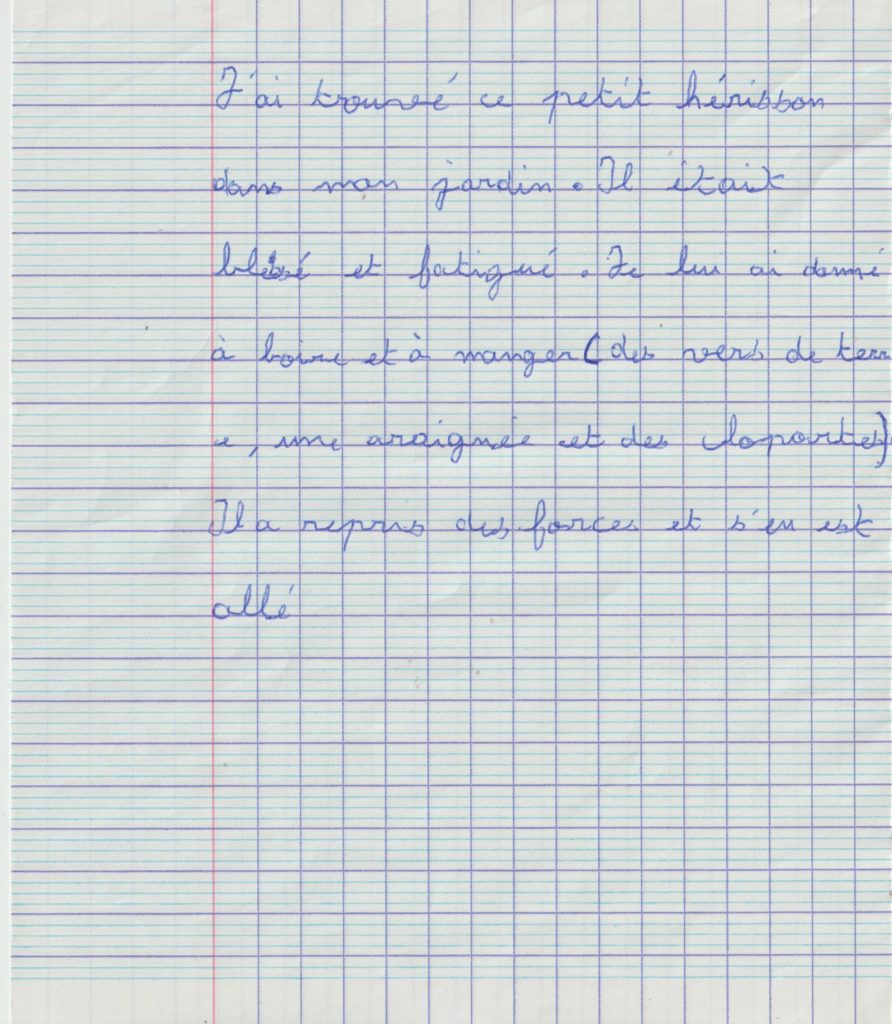 J'ai trouvé ce petit hérisson
dans mon jardin. Il était
blessé et fatigué. Je lui ai donné
à boire et à manger (des vers de terr
e, une araignée et des cloportes)
Il a repris des forces et s'en est
allé